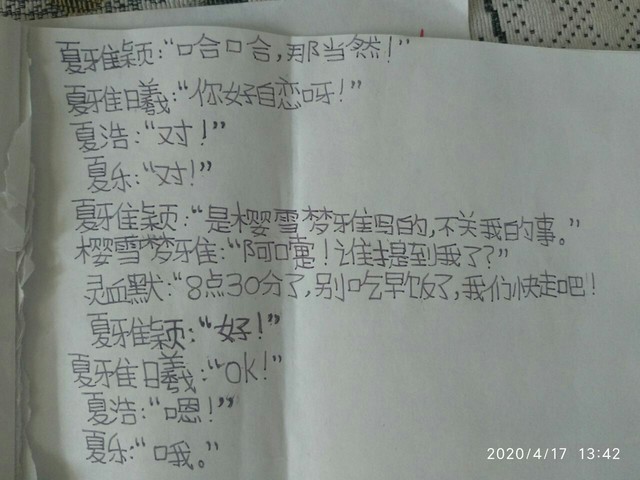 夏雅颖:“哈哈,那当然!”
夏雅曦:“你好自恋呀!”
夏浩:“对!”
夏乐:“对!”
夏雅颖:“是樱雪梦雅写的,不关我的事。”
樱雪梦雅:“阿嚏!谁提到我了?”
灵血默:“8点30分了,别吃早饭了,我们快走吧!
夏雅颖:“好!”
夏雅曦:“OK!”
夏浩:“嗯!”
夏乐:“哦。”
2020/4/17 13:42